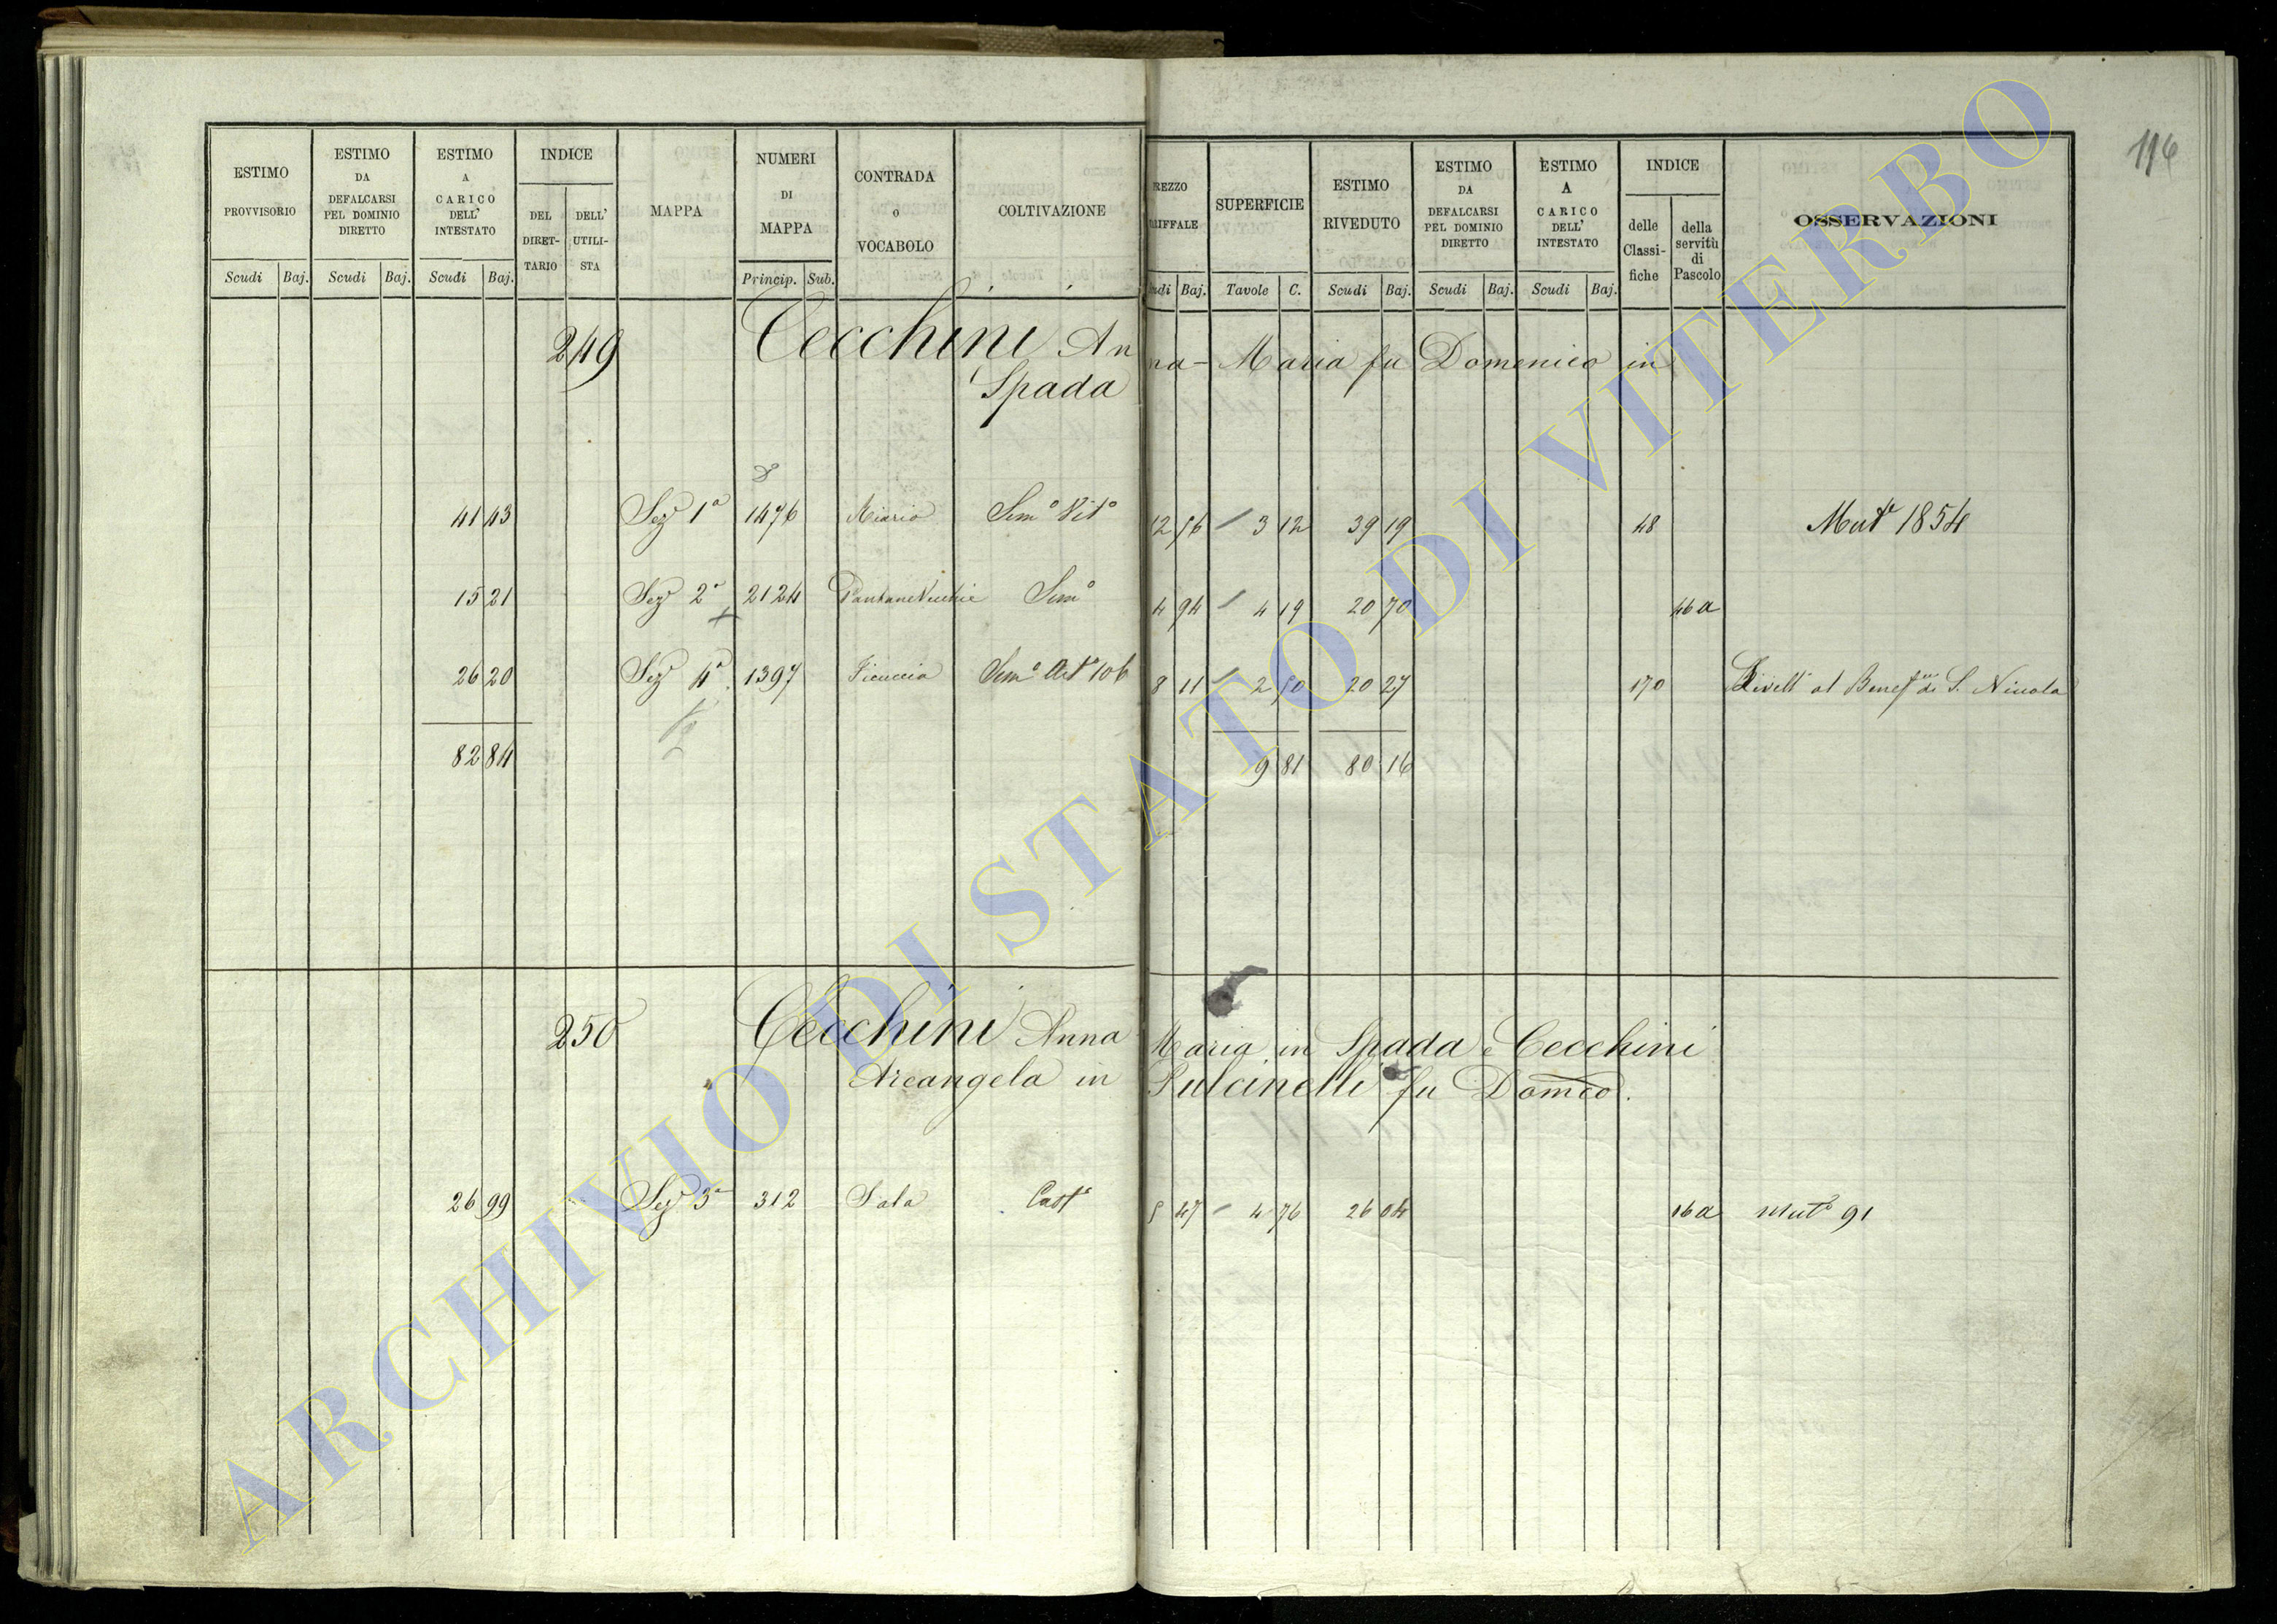 196
ESTIMO PROVVISORIO
ESTIMO DA DEFALCARSI PEL DOMINIO DIRETTO
ESTIMO A CARICO DELL' INTESTATO
INDICE
DEL DIRET-TARIO
DELL' UTILI-STA
MAPPA
NUMERI DI MAPPA
CONTRADA o VOCABOLO
COLTIVAZIONE
REZZO RIFFALE
SUPERFICIE
ESTIMO RIVEDUTO
ESTIMO DA DEFALCARSI PEL DOMINIO DIRETTO
ESTIMO A CARICO DELL' INTESTATO
INDICE
delle Classi-fiche
della servitù di Pascolo
OSSERVAZIONI
Scudi Baj. Scudi Baj. Scudi Baj. Princip. Sub. udi Baj. Tavole C. Scudi Baj. Scudi Baj. Scudi Baj.
249 Cecchini Anna-Maria fu Domenico in
Spada
41 43 Sezᵉ 1ª 1476 Miario Semº Vitº 12 56 3 12 39 19 48 Mutª 1854
15 21 Sezᵉ 2ª 2124 Pantane Vecchie Semº 4 94 4 19 20 70 46a
26 20 Sezᵉ 4ª 1397 Ficuccia Semº 8 11 2 50 20 27 170 Livellº al Benefᵐ di S. Nicola
82 84 9 81 80 16
250 Cecchini Anna Maria in Spada e Cecchini
Arcangela in Pulcinelli fu Domco.
26 99 Sezᵉ 3ª 312 Sala Castº 5 47 4 76 26 04 16a Mutª 91
ARCHIVIO DI STATO DI VITERBO